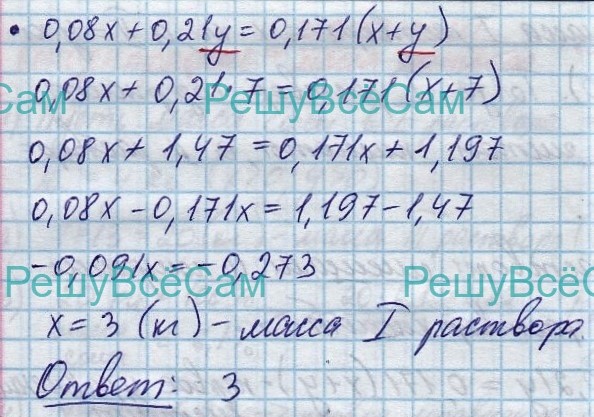 • 0,08x + 0,21y = 0,171(x+y)
0,08x + 0,21·7 = 0,171(x+7)
РешуВсёСам РешуВсёСам
0,08x + 1,47 = 0,171x + 1,197
0,08x - 0,171x = 1,197 - 1,47
-0,091x = -0,273
РешуВсёСам РешуВсёСам
x = 3 (кг) - масса I раствора.
Ответ: 3